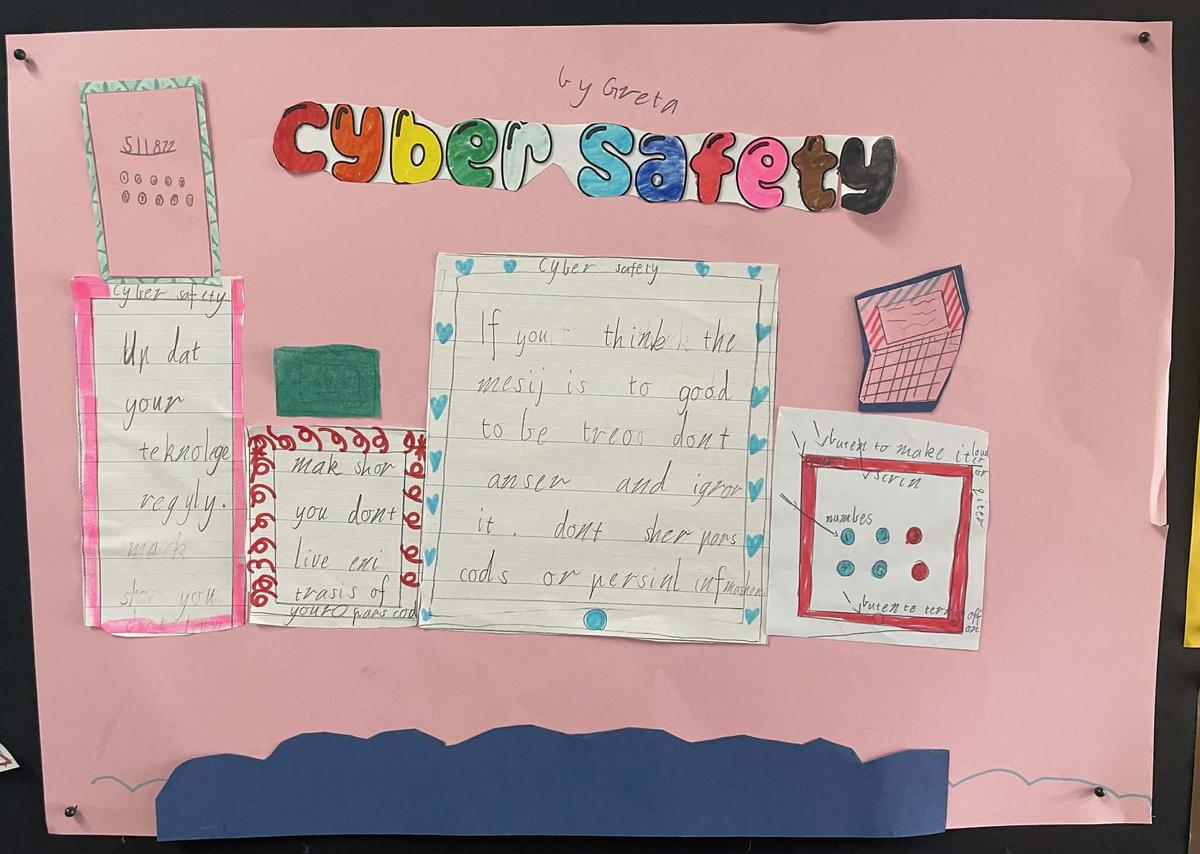 by Greta
cyber safety
511872
cyber safety
Up dat
your
teknolege
regyly.
mark
shor you
mak shor
you dont
live eni
trasis of
your pars cod
Cyber safety
If you think the
mesij is to good
to be treoo dont
anser and ignor
it. dont sher pars
cods or persinl infmashen
buten to make it louder
or
scrin
numbes
1 2 3
4 5
buten to tern off
on